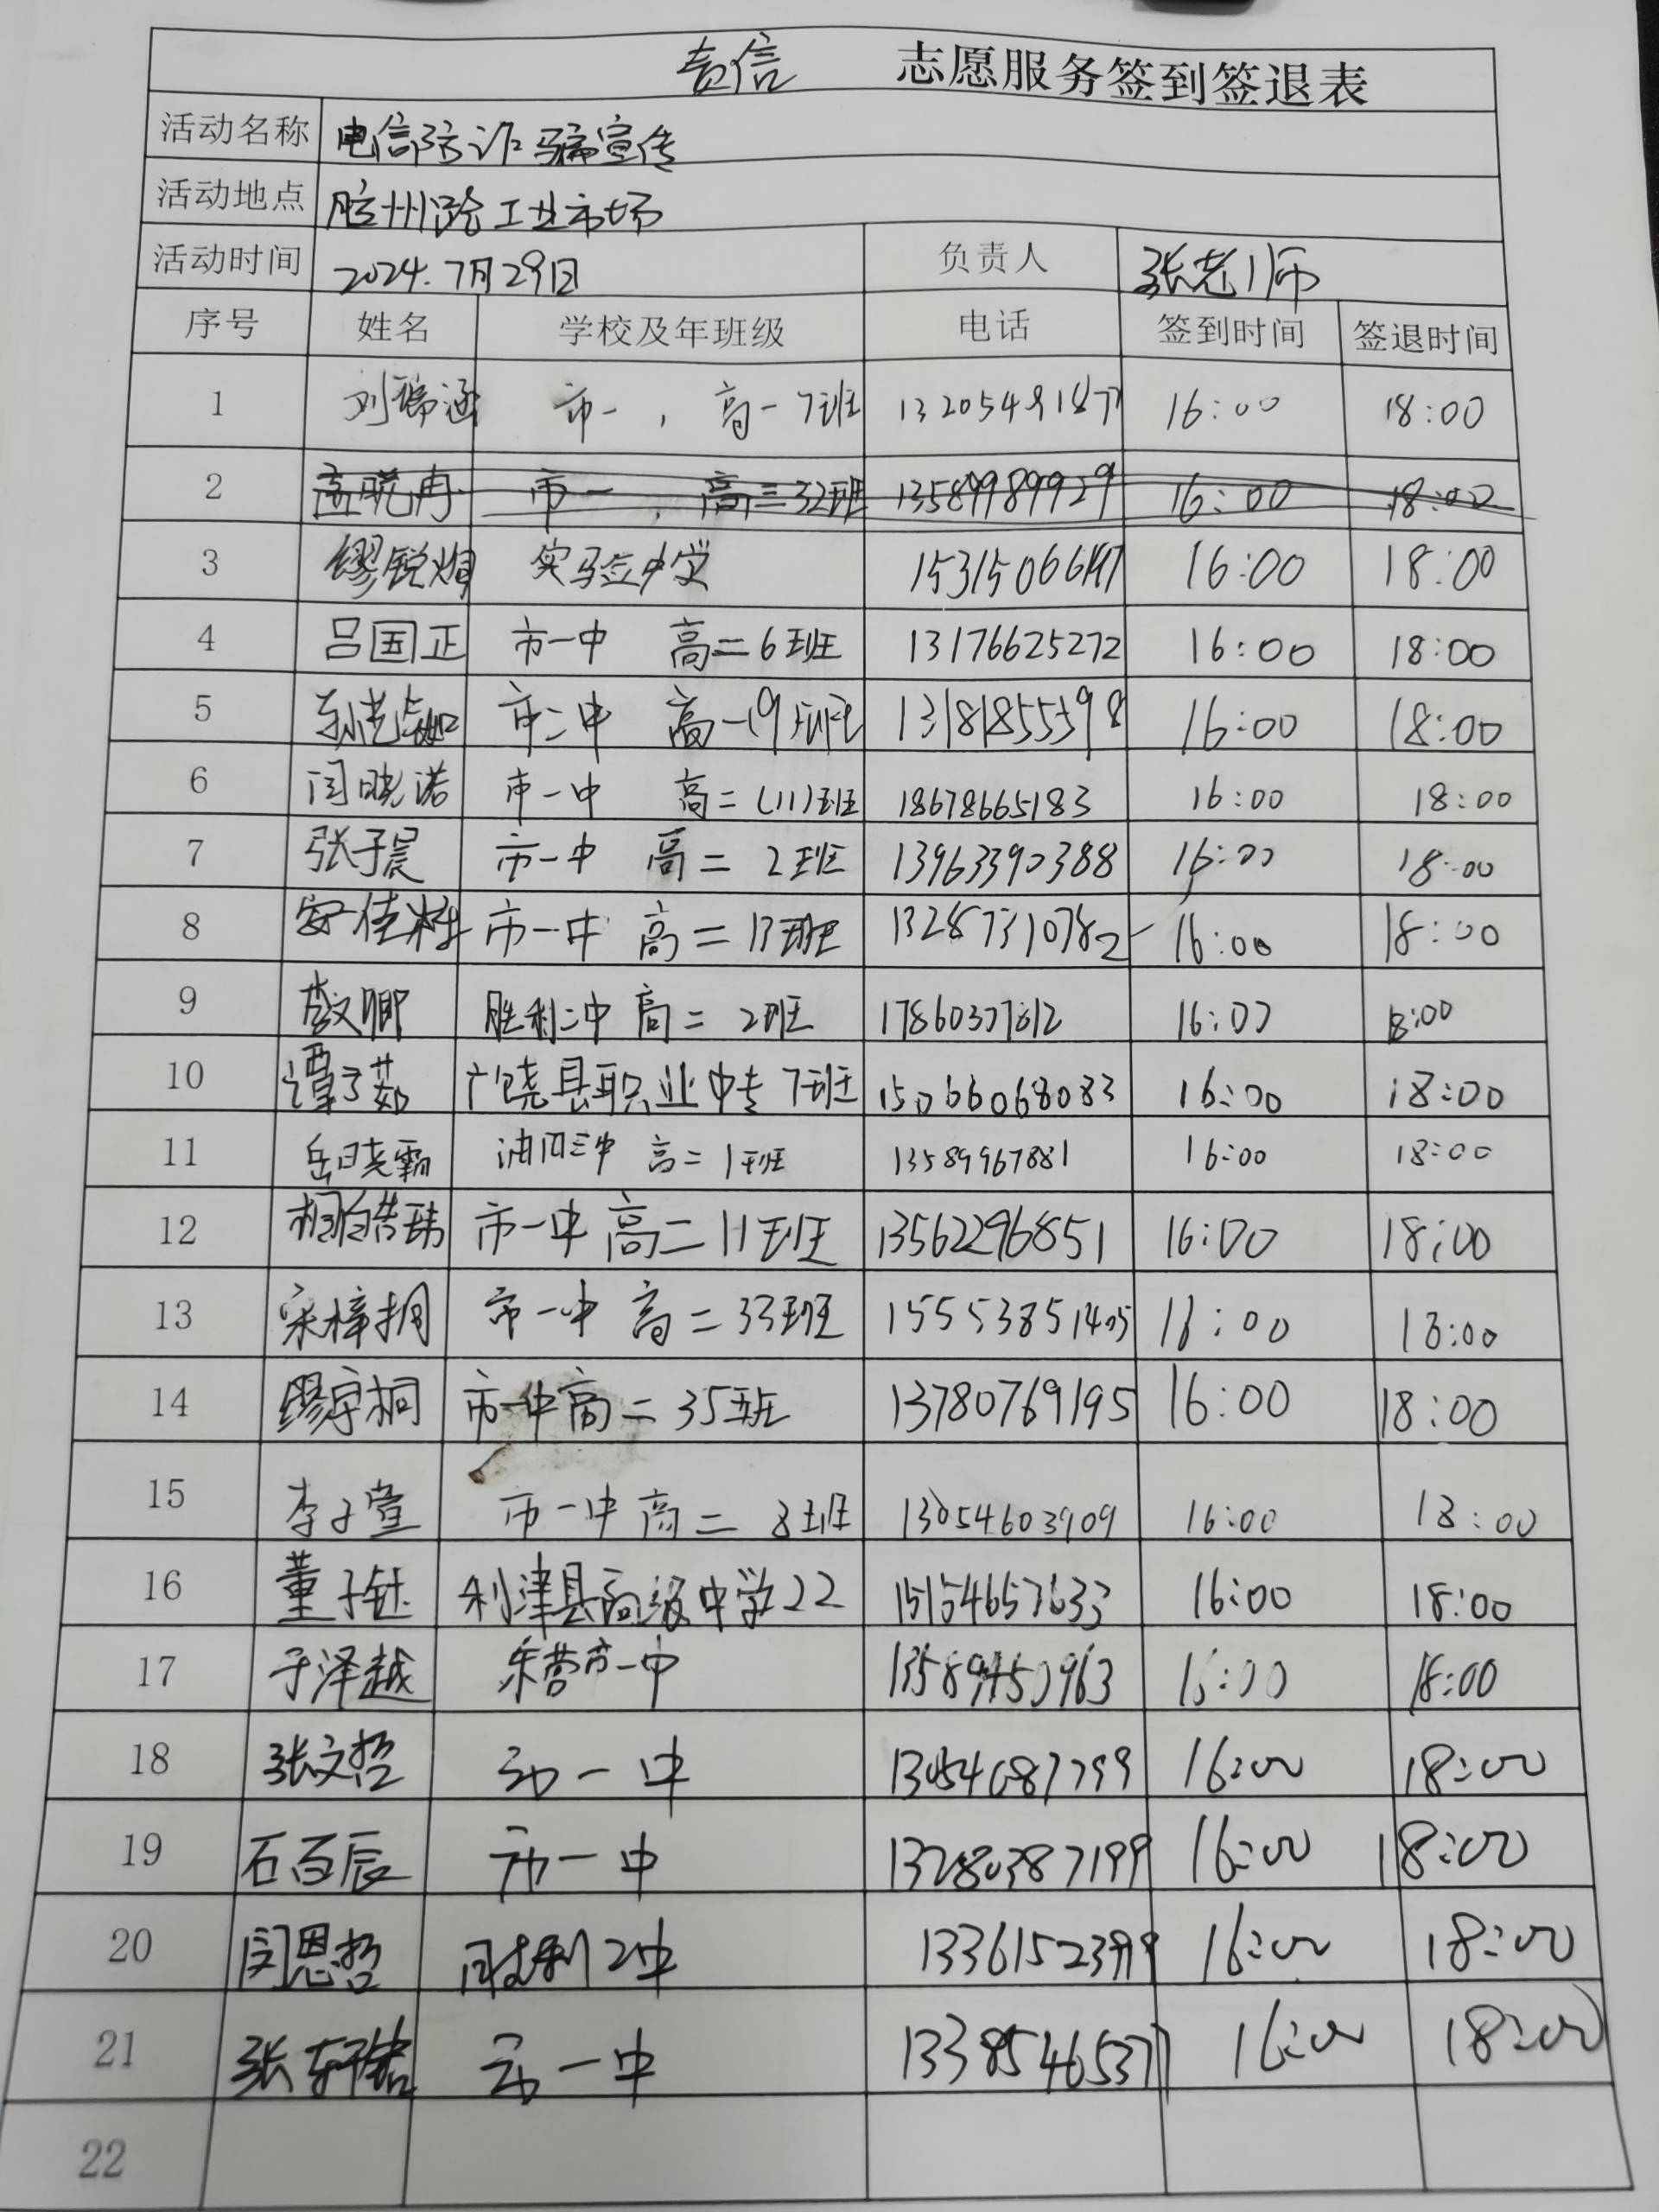 责信 志愿服务签到签退表
活动名称 电信防诈骗宣传
活动地点 胶州路工业市场
活动时间 2024.7月29日 负责人 张老师
序号 姓名 学校及年班级 电话 签到时间 签退时间
1 刘 涵 市一, 高一7班 13205491877 16:00 18:00
2 孟晓冉 市一, 高三32班 13589989929 16:00 18:00
3 缪锐炯 实验中学 16:00 18:00
4 吕国正 市一中 高二6班 13176625272 16:00 18:00
5 市二中 高一19班 13181855598 16:00 18:00
6 闫晓诺 市一中 高二(11)班 18678665183 16:00 18:00
7 张子晨 市一中 高二 2班 13963390388 16:00 18:00
8 安佳 市一中 高二13班 13287310782 16:00 18:00
9 胜利二中 高二 2班 16:00 18:00
10 谭子茹 广饶县职业中专7班 15066068083 16:00 18:00
11 岳晓霸 油田三中 高二1班 13589967881 16:00 18:00
12 市一中高二11班 13562296851 16:00 18:00
13 宋梓桐 市一中 高二33班 15553851405 16:00 18:00
14 缪宇桐 市一中高二35班 13780769195 16:00 18:00
15 李子萱 市一中高二 8班 13054603909 16:00 18:00
16 董子钰 利津县高级中学22 15154657633 16:00 18:00
17 于泽越 东营市一中 13589450963 16:00 18:00
18 张文哲 市一中 13054687799 16:00 18:00
19 石百辰 市一中 13280387199 16:00 18:00
20 闫恩哲 胜利2中 16:00 18:00
21 张轩铭 市一中 13385465377 16:00 18:00
22